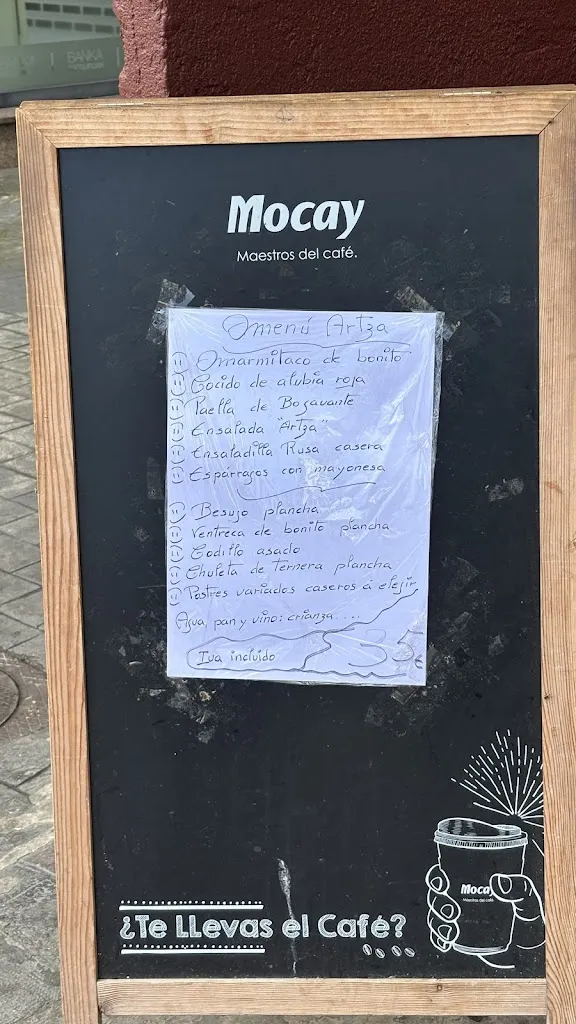 BANKA
Mocay
Maestros del café.
Menú Artza
Marmitaco de bonito
Cocido de alubia roja
Paella de Bogavante
Ensalada "Artza"
Ensaladilla Rusa casera
Espárragos con mayonesa
Besujo plancha
Ventreca de bonito plancha
Codillo asado
Chuleta de ternera plancha
Postres variados caseros á elejir
Agua, pan y vino: crianza....
Iva incluido
35€
Mocay
Maestros del café
¿Te LLevas el Café?